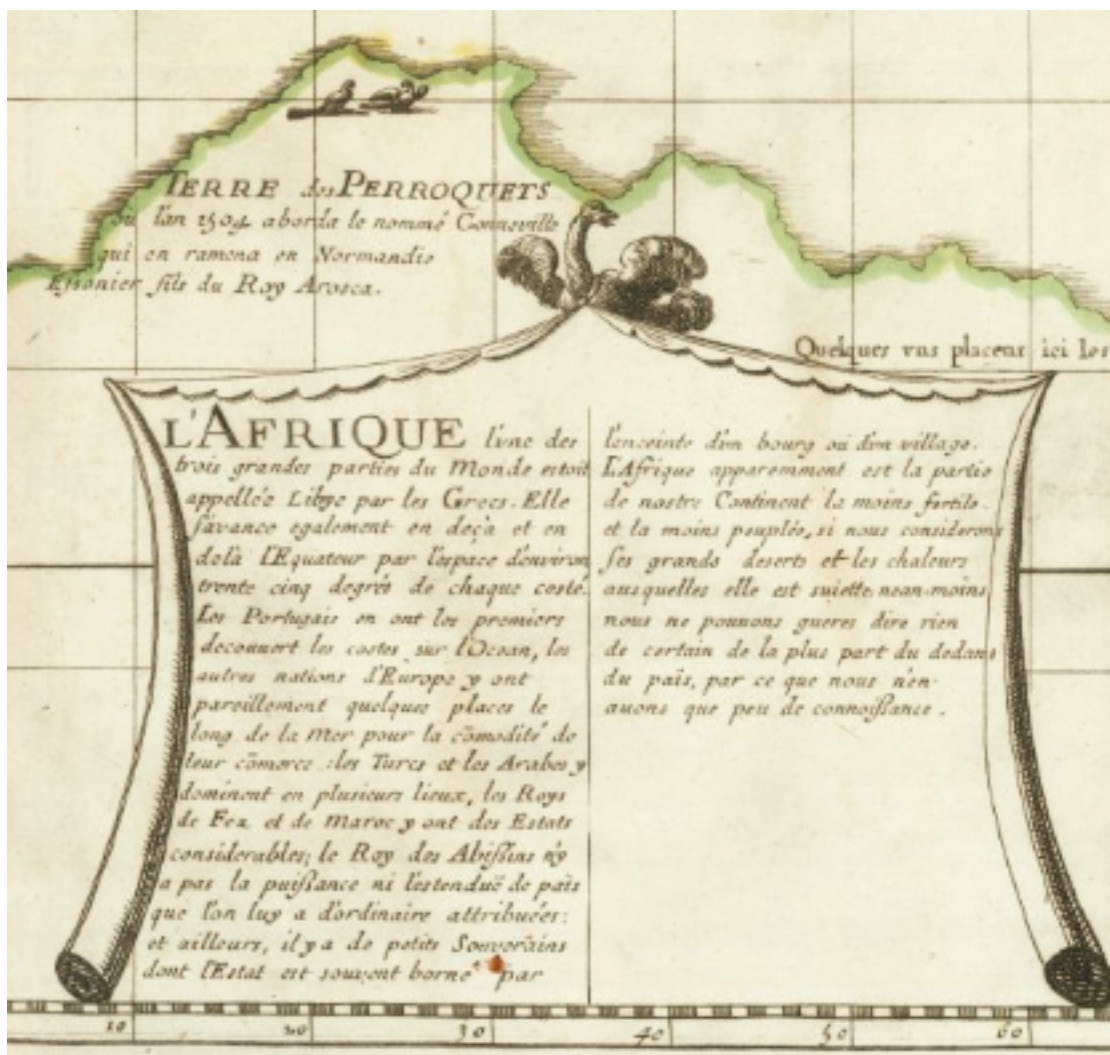 TERRE des PERROQUETS
ou l'an 1504 aborda le nommé Gonneville
qui en ramena en Normandie
Essonier fils du Roy Arosca.
Quelques vns placent ici les
L'AFRIQUE l'vne des
trois grandes parties du Monde estoit
appellée Libye par les Grecs. Elle
s'avance egalement en deçà et en
delà l'Equateur par l'espace d'environ
trente cinq degrés de chaque costé.
Les Portugais en ont les premiers
decouuert les costes sur l'Ocean, les
autres nations d'Europe y ont
pareillement quelque places le
long de la Mer pour la cōmodité de
leur cōmerce : les Turcs et les Arabes y
dominent en plusieurs lieux, les Roys
de Fez et de Maroc y ont des Estats
considerables; le Roy des Abissins n'y
a pas la puissance ni l'estenduë de païs
que l'on luy a d'ordinaire attribuées:
et ailleurs, il y a de petits Souverains
dont l'Estat est souvent borné par
l'enceinte d'vn bourg ou d'vn village.
L'Afrique apparemment est la partie
de nostre Continent la moins fertile
et la moins peuplée, si nous considerons
ses grands deserts et les chaleurs
ausquelles elle est suiette. nean-moins
nous ne pouuons gueres dire rien
de certain de la plus part du dedans
du païs, par ce que nous n'en
auons que peu de connoissance.
10 20 30 40 50 60